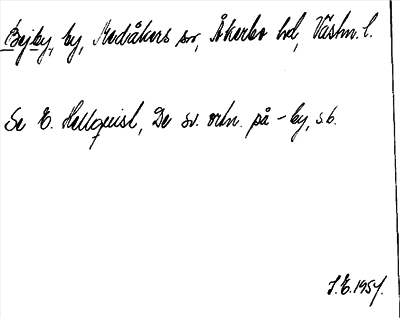 Bejby, by, Medåkers sn, Åkerbo hd, Västm. l.
Se E. Hellquist, De sv. ortn. på -by, s 6.
J.E. 1954.